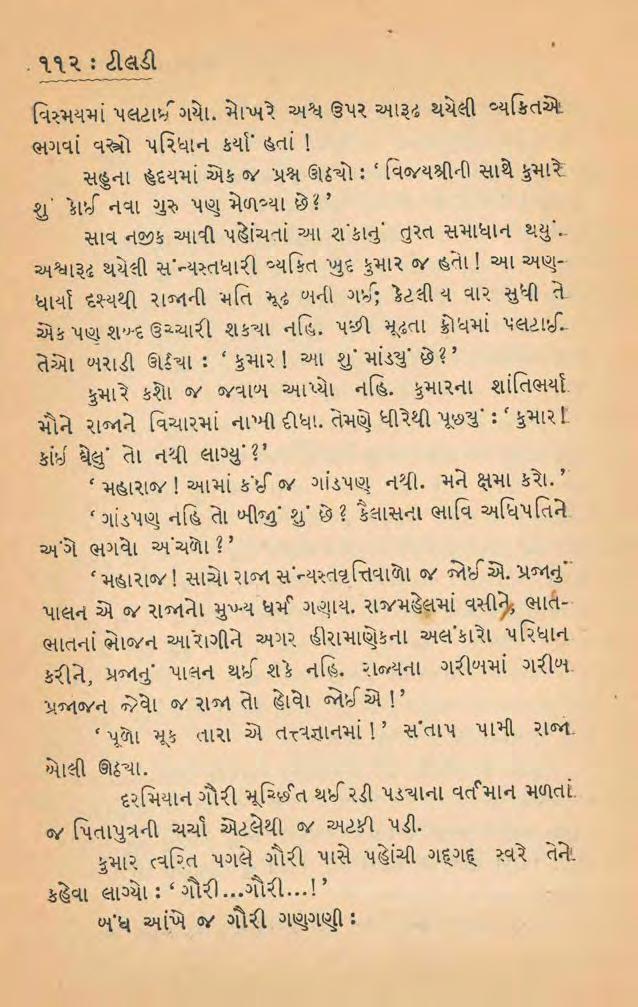 ૧૧૨ : ટીલડી
વિસ્મયમાં પલટાઈ ગયો. મોખરે અશ્વ ઉપર આરૂઢ થયેલી વ્યક્તિએ
ભગવાં વસ્ત્રો પરિધાન કર્યાં હતાં !
સહુના હૃદયમાં એક જ પ્રશ્ન ઊઠ્યો : ‘ વિજયશ્રીની સાથે કુમારે
શું કોઈ નવા ગુરુ પણ મેળવ્યા છે ? ’
સાવ નજીક આવી પહોંચતાં આ શંકાનું તુરત સમાધાન થયું.
અશ્વારૂઢ થયેલી સંન્યસ્તધારી વ્યક્તિ ખુદ કુમાર જ હતો ! આ અણ-
ધાર્યા દૃશ્યથી રાજાની મતિ મૂઢ બની ગઈ; કેટલી ય વાર સુધી તે
એક પણ શબ્દ ઉચ્ચારી શક્યા નહિ. પછી મૂઢતા ક્રોધમાં પલટાઈ.
તેઓ બરાડી ઊઠ્યા : ‘ કુમાર ! આ શું માંડ્યું છે ? ’
કુમારે કશો જ જવાબ આપ્યો નહિ. કુમારના શાંતિભર્યા
મૌને રાજાને વિચારમાં નાખી દીધા. તેમણે ધીરેથી પૂછ્યું : ‘ કુમાર !
કાંઈ ઘેલું તો નથી લાગ્યું ? ’
‘ મહારાજ ! આમાં કંઈ જ ગાંડપણ નથી. મને ક્ષમા કરો. ’
‘ ગાંડપણ નહિ તો બીજું શું છે ? કૈલાસના ભાવિ અધિપતિને
અંગે ભગવો અંચળો ? ’
‘ મહારાજ ! સાચો રાજા સંન્યસ્તવૃત્તિવાળો જ જોઈએ. પ્રજાનું
પાલન એ જ રાજાનો મુખ્ય ધર્મ ગણાય. રાજમહેલમાં વસીને, ભાત-
ભાતનાં ભોજન આરોગીને અગર હીરામાણેકના અલંકારો પરિધાન
કરીને, પ્રજાનું પાલન થઈ શકે નહિ. રાજ્યના ગરીબમાં ગરીબ
પ્રજાજન જેવો જ રાજા તો હોવો જોઈએ ! ’
‘ પૂળો મૂક તારા એ તત્ત્વજ્ઞાનમાં ! ’ સંતાપ પામી રાજા
બોલી ઊઠ્યા.
દરમિયાન ગૌરી મૂર્ચ્છિત થઈ રડી પડ્યાના વર્તમાન મળતાં
જ પિતાપુત્રની ચર્ચા એટલેથી જ અટકી પડી.
કુમાર ત્વરિત પગલે ગૌરી પાસે પહોંચી ગદ્‌ગદ્ સ્વરે તેને
કહેવા લાગ્યો : ‘ ગૌરી...ગૌરી...! ’
બંધ આંખે જ ગૌરી ગણગણી :